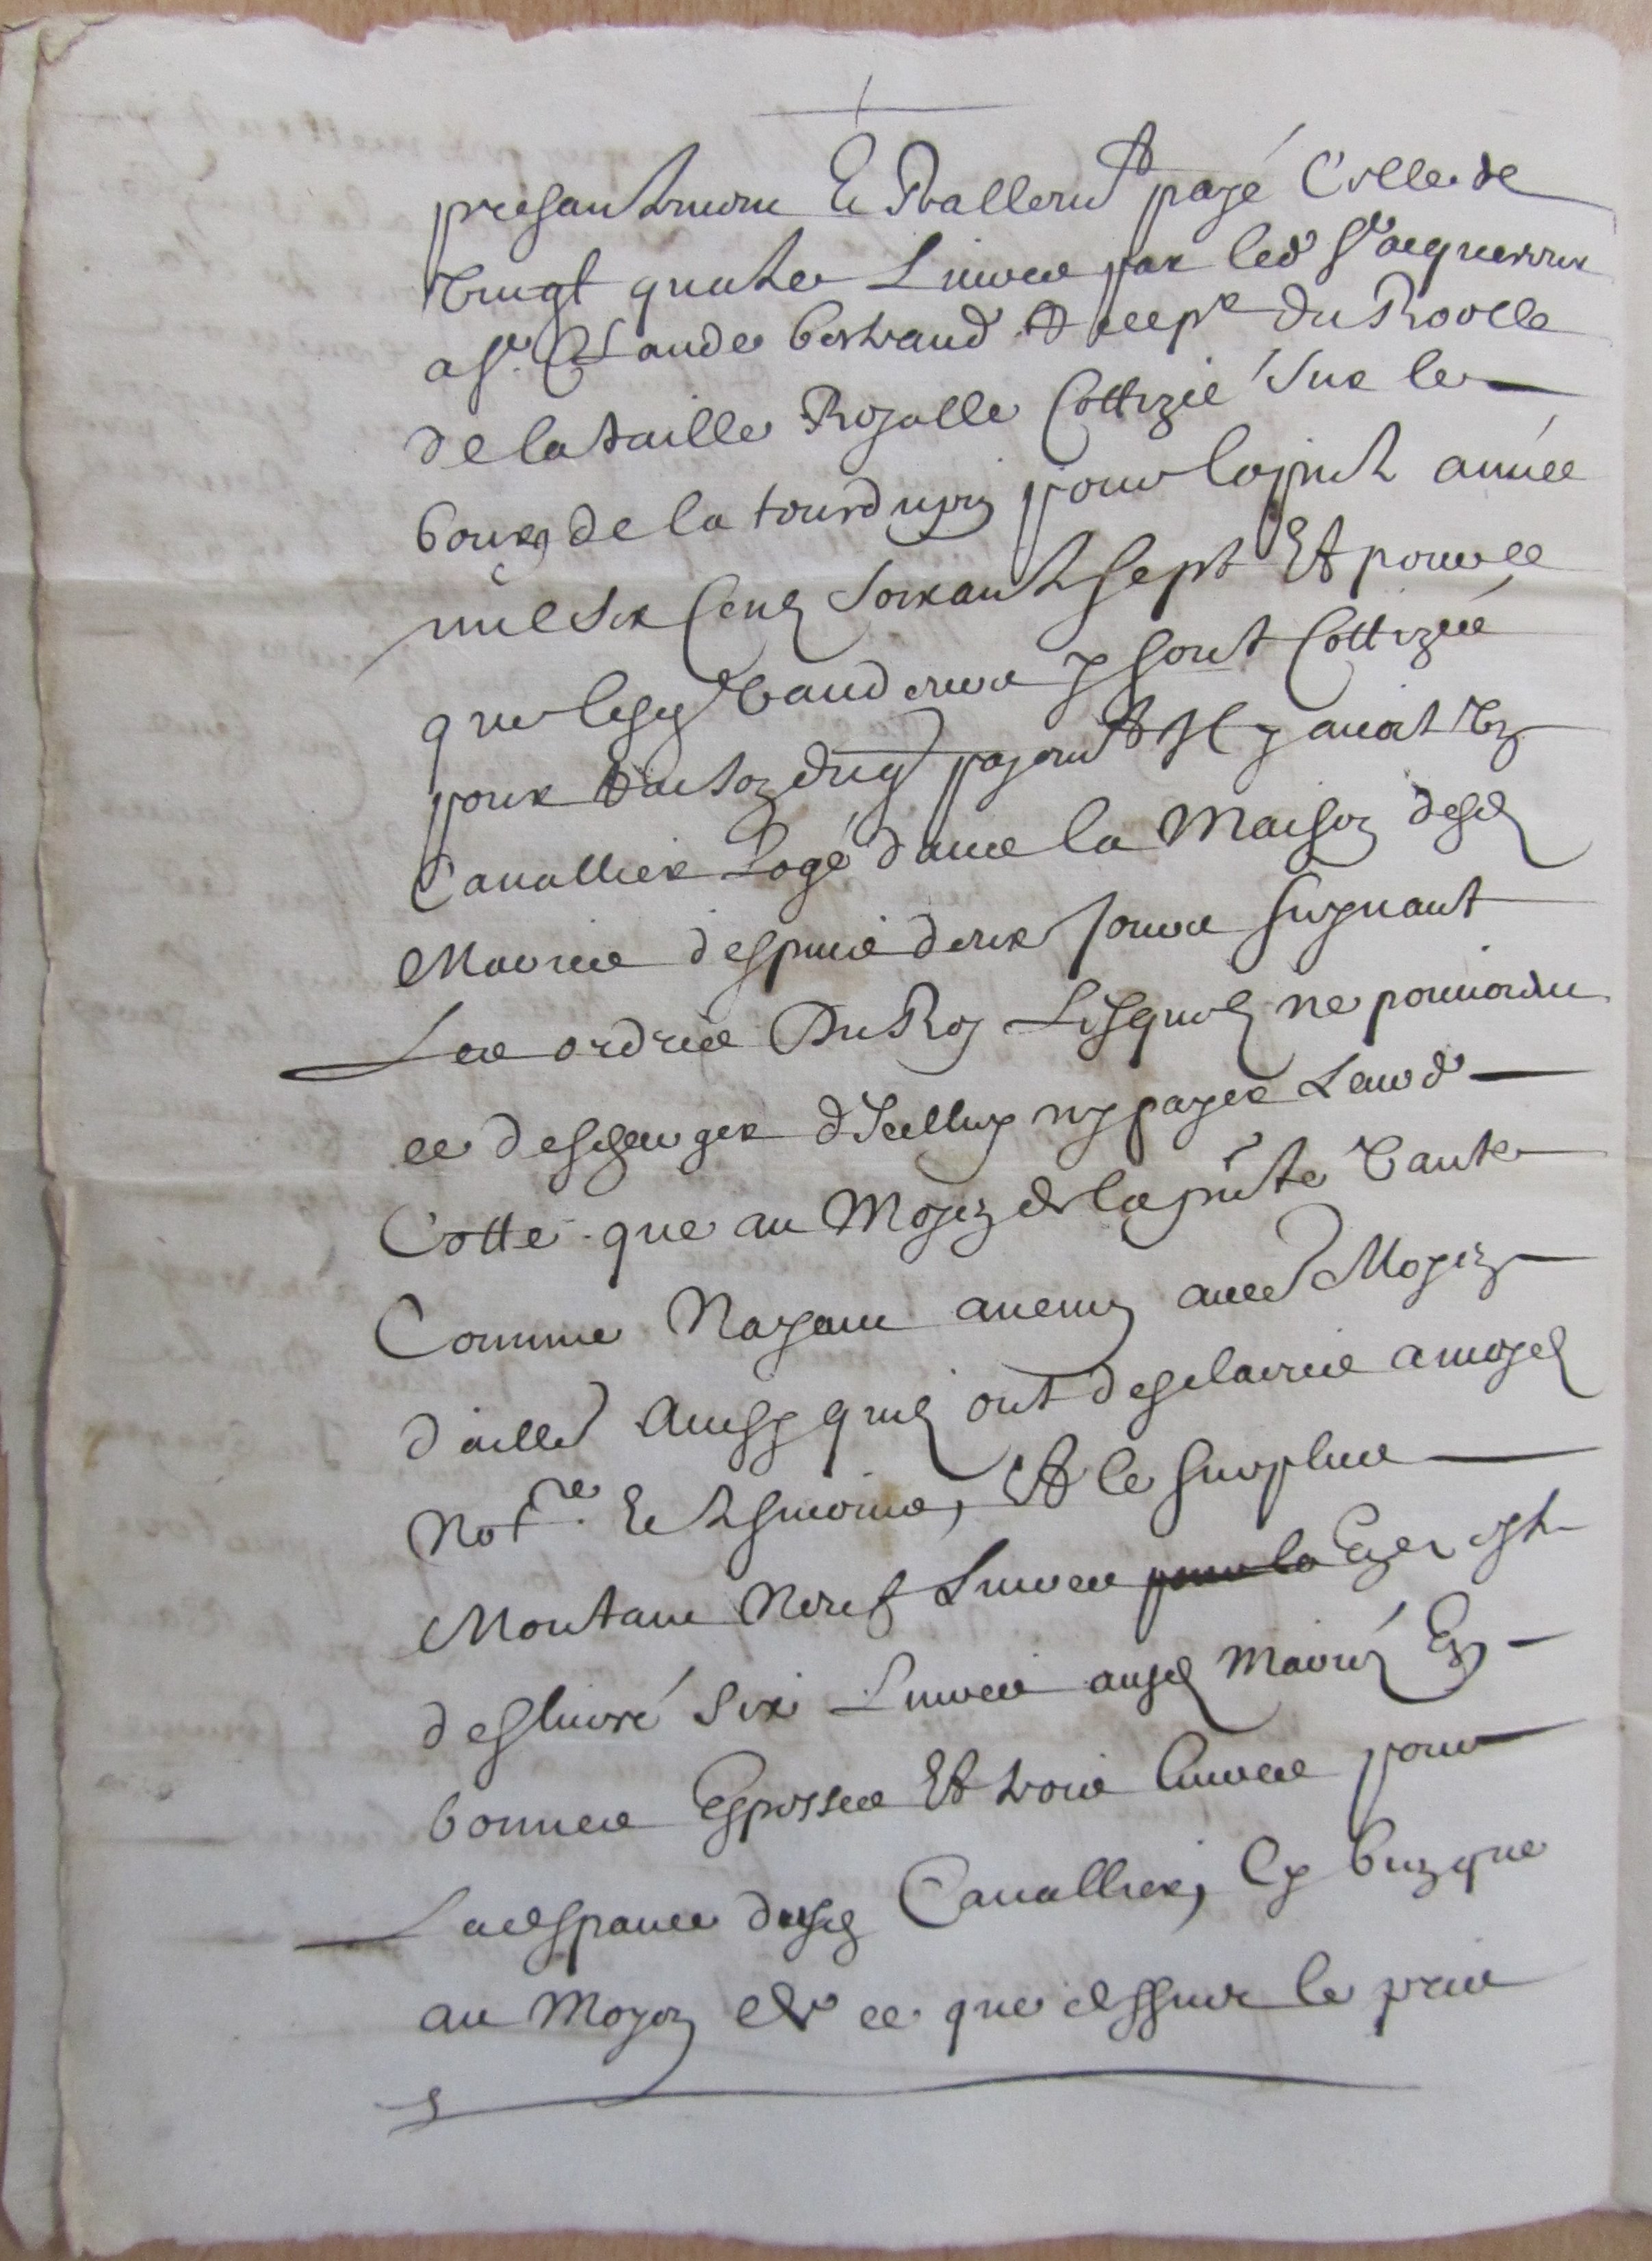 presantement et reallemt payé Celle de
vingt quatre Livres par led Sr acquereur
a Sr Claude bertrand Recepr du Roolle
de la taille Royalle Cottizée sur le
bourg de la tourdupin pour la pnte année
mil six Cens soixante sept Et pour ce
que lesd vandeurs y sont Cottizés
pour payemt Il y auoit Un
Cauallier Logé dans la Maison desd
Mariés despuis deux Jours suyuant
Les ordres Du Roy Lesquels ne pouuoient
ce descharger dIcelluy ny payer Leurd
Cotte que au Moyen de la pnte Vante
Comme Nayant aucung autre Moyen
dailleurs Aussy quils ont desclairés a moyd
Notre et tesmoins, Et le surplus
Montant Neuf Liures Luy est
desliuré six Liures ausd Mariés En
bonnes Espesses Et trois liures pour
La despance dud Cauallier, Cy bien que
au Moyen de ce que dessus le prix